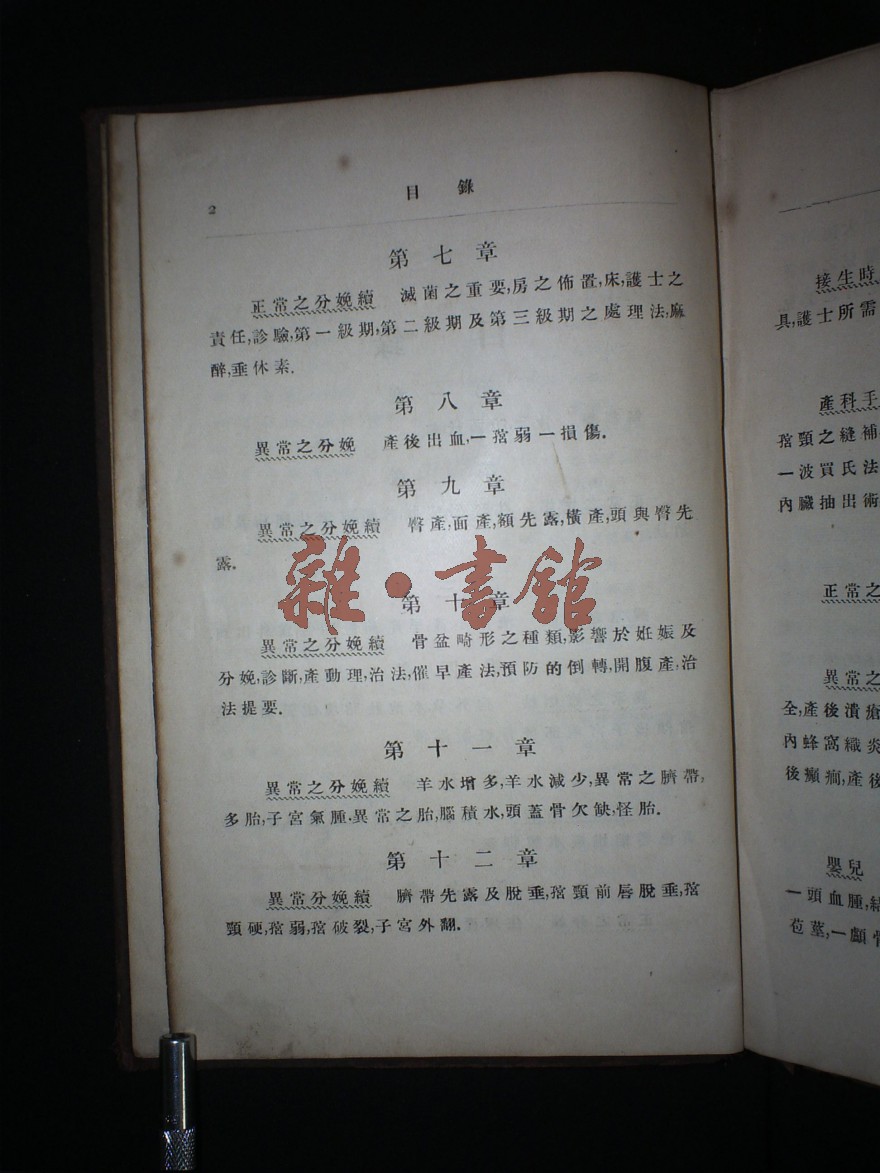 2
目錄
第七章
正常之分娩續 滅菌之重要,房之佈置,床,護士之
責任,診驗,第一級期,第二級期及第三級期之處理法,麻
醉,垂休素.
第八章
異常之分娩 產後出血,一𦞂弱一損傷.
第九章
異常之分娩續 臀產,面產,額先露,橫產,頭與臀先
露.
雜·書館
第十章
異常之分娩續 骨盆畸形之種類,影響於妊娠及
分娩,診斷,產動理,治法,催早產法,預防的倒轉,開腹產,治
法提要.
第十一章
異常之分娩續 羊水增多,羊水減少,異常之臍帶,
多胎,子宮氣腫,異常之胎,腦積水,頭蓋骨欠缺,怪胎.
第十二章
異常分娩續 臍帶先露及脫垂,頸前唇脫垂,
頸硬,弱,破裂,子宮外翻.
接生時
具,護士所需
產科手
頸之縫補
一波買氏法
內臟抽出術
正常之
異常之
全,產後潰瘡
內蜂窩織炎
後癲癇,產後
嬰兒
一頭血腫,結
一顱骨